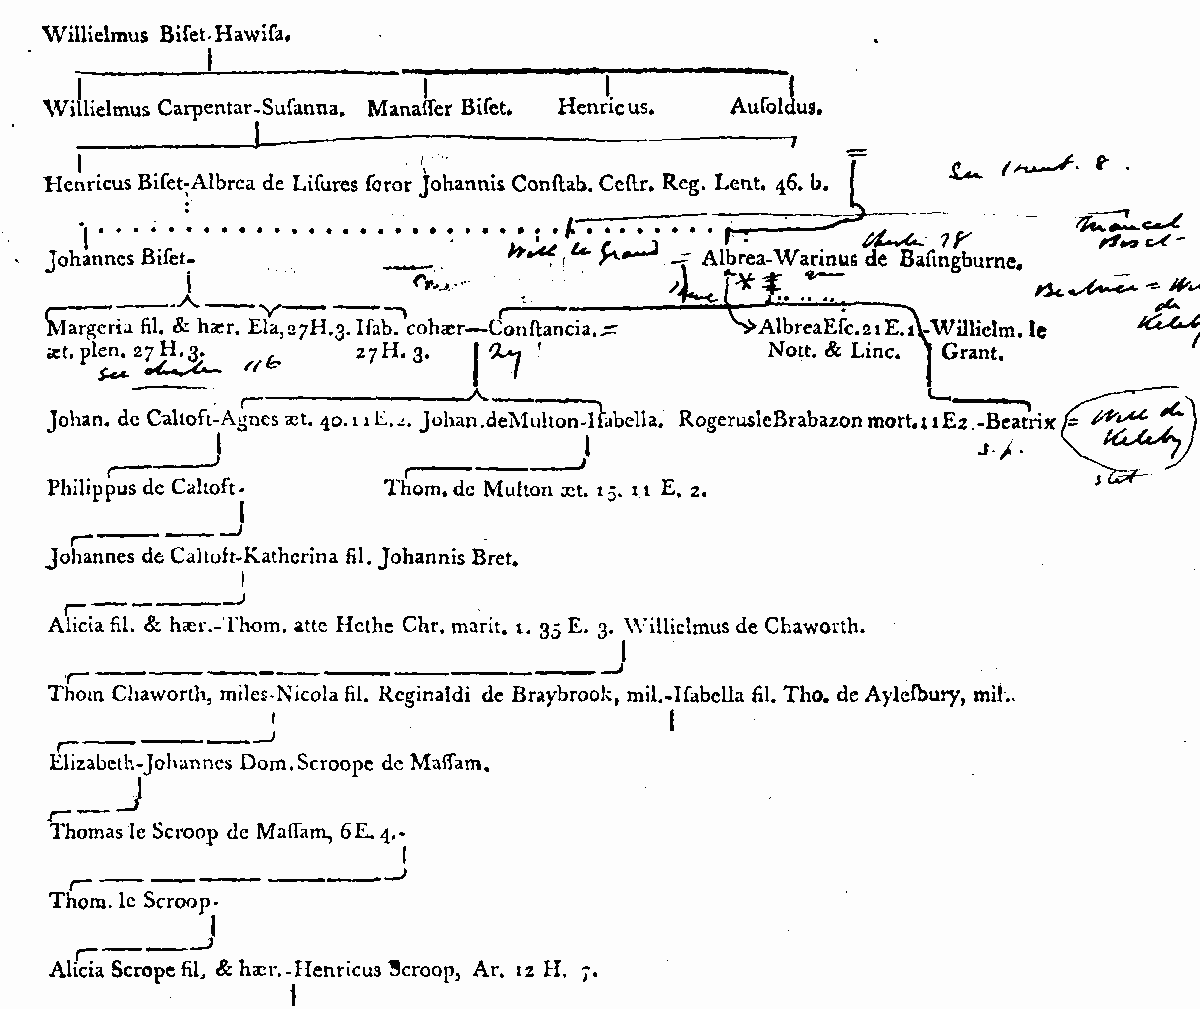 Willielmus Biſet-Hawiſa.
Willielmus Carpentar-Suſanna. Manaſſer Biſet. Henricus. Auſoldus.
Henricus Biſet-Albrea de Liſures ſoror Johannis Conſtab. Ceſtr. Reg. Lent. 46. b.
8.
Will. le Grand
Johannes Biſet- = Albrea-Warinus de Baſingburne.
Margeria fil. & hær. Ela, 27H.3. Iſab. cohær-Conſtancia. = AlbreaEſc.21E.1-Willielm. le
æt. plen. 27 H. 3. 27 H. 3. 27 Nott. & Linc. Grant.
See charter 116
Johan. de Caltoft-Agnes æt. 40. 11 E. 2. Johan. de Multon-Iſabella. Rogerus le Brabazon mort. 11 E 2.-Beatrix = Will de
Keleby
s. p.
Philippus de Caltoft- Thom. de Multon æt. 15. 11 E. 2.
Johannes de Caltoft-Katherina fil. Johannis Bret.
Alicia fil. & hær.-Thom. atte Hethe Chr. marit. 1. 35 E. 3. Willielmus de Chaworth.
Thom Chaworth, miles-Nicola fil. Reginaldi de Braybrook, mil.-Iſabella fil. Tho. de Ayleſbury, mil.
Elizabeth-Johannes Dom. Scroope de Maſſam.
Thomas le Scroop de Maſſam, 6 E. 4.-
Thom. le Scroop-
Alicia Scrope fil. & hær.-Henricus Scroop, Ar. 12 H. 7.